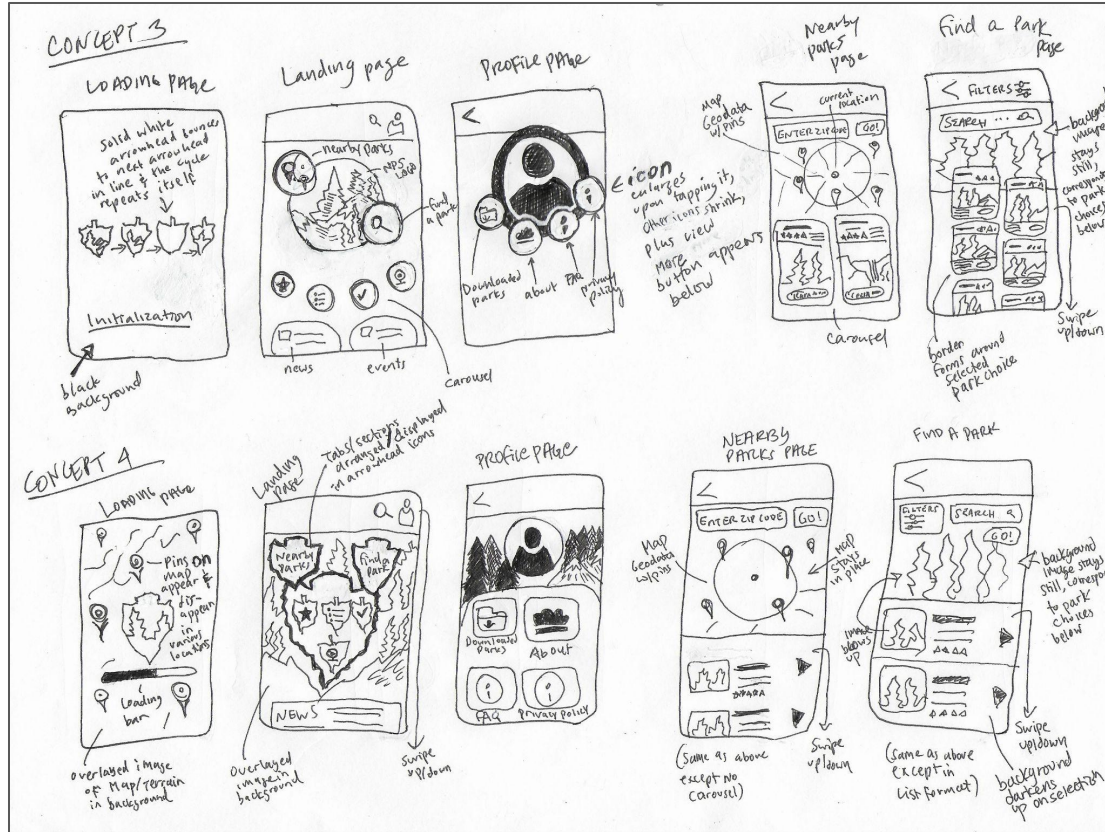 CONCEPT 3
LOADING PAGE
Solid white
arrowhead bounces
to next arrowhead
in line & the cycle
repeats itself
Initialization
black
background
Landing page
nearby parks
NPS
LOGO
find
a park
news
events
carousel
PROFILE PAGE
Downloaded
parks
about
FAQ
privacy
policy
icon
enlarges
upon tapping it,
other icons shrink,
plus view
more
button appears
below
Nearby
parks
page
Map
Geodata
w/pins
current
location
ENTER ZIP CODE
GO!
carousel
Find a Park
page
FILTERS
SEARCH ...
background
image
stays
still,
corresponds
to park
choices
below
Swipe
up/down
border
forms around
selected
park choice
CONCEPT 4
LOADING PAGE
Pins on
map
appear &
dis-
appear
in
various
locations
Loading
bar
overlayed image
of Map/Terrain
in background
Landing
page
Tabs/sections
arranged/displayed
in arrowhead icons
Nearby
Parks
Find a
Park
NEWS
Overlayed
image in
background
Swipe
up/down
PROFILE PAGE
Downloaded
Parks
About
FAQ
privacy policy
NEARBY
PARKS PAGE
ENTER ZIP CODE
GO!
Map
Geodata
w/pins
Map
stays
in place
(Same as above
except no
carousel)
Swipe
up/down
FIND A PARK
FILTERS
SEARCH
GO!
background
image stays
still, correspon
to park
choices
below
IMAGE
blows
up
(Same as above
except in
list format)
Swipe
up/down
background
darkens
up on selection